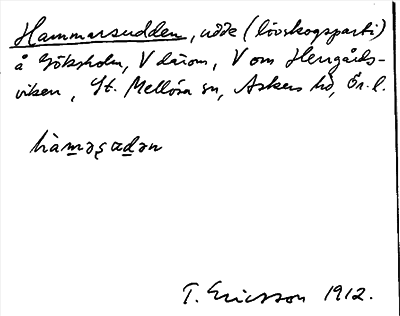 Hammarsudden, udde (lövskogsparti)
å Göksholm, V därom, V om Herrgårds-
viken, St. Mellösa sn, Askers hd, Ör. l.
hàmaşudən
T. Ericsson 1912.